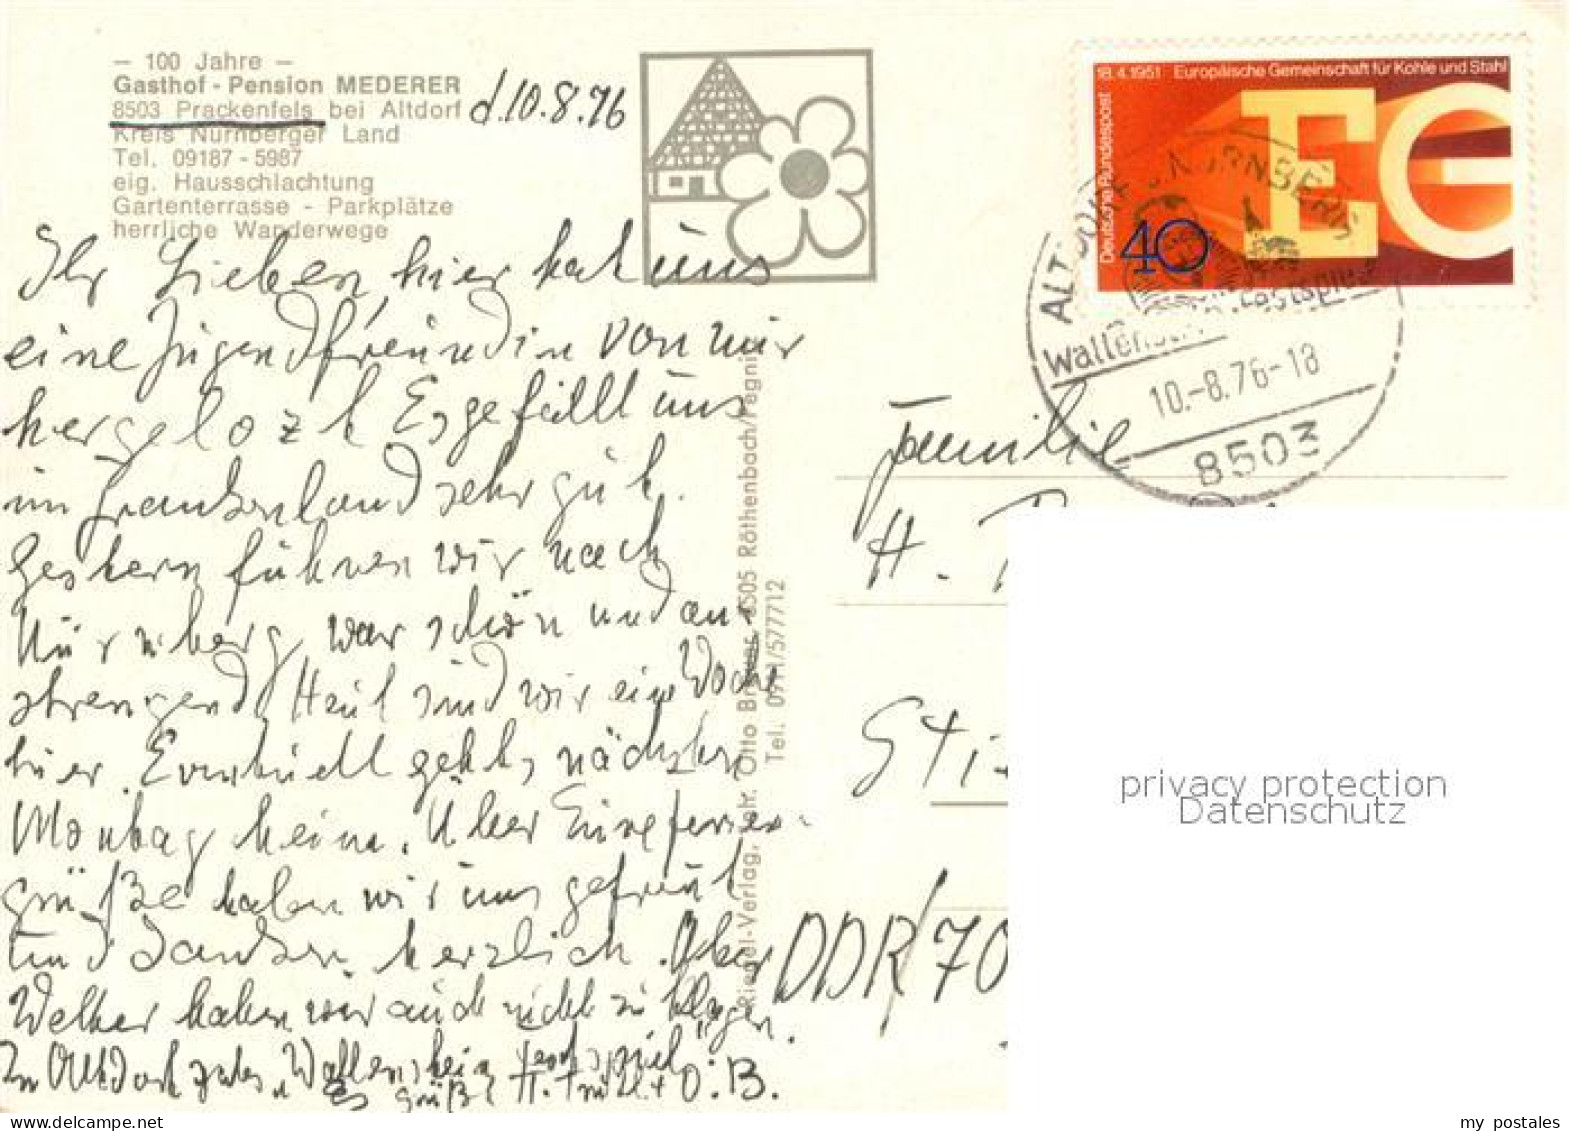 – 100 Jahre –
Gasthof - Pension MEDERER
8503 Prackenfels bei Altdorf
Kreis Nürnberger Land
Tel. 09187 - 5987
eig. Hausschlachtung
Gartenterrasse - Parkplätze
herrliche Wanderwege
d. 10.8.76
Ihr Lieben hier hat uns
eine Jugendfreundin von mir
hergelozt Es gefällt uns
im Frankenland sehr gut.
Gestern fuhren wir nach
Nürnberg, war schön und an
strengend Heut sind wir eine Woche
hier. Eventuell geht's nächsten
Montag heim. Über Eure ferien
grüße haben wir uns gefreut
und danken herzlich. Über
Wetter haben wir auch nicht zu klagen.
In Altdorf Wallenstein Festspiel
Grüße H. + O. B.
Riegel-Verlag, Otto 8505 Röthenbach/Pegnitz
Tel. 0911/577712
18.4.1951 Europäische Gemeinschaft für Kohle und Stahl
Deutsche Bundespost
EG
40
ALTDORF B. NÜRNBERG
Wallenstein Festspiele
10.-8.76-18
8503
Familie
H.
DDR/70
privacy protection
Datenschutz
my postales